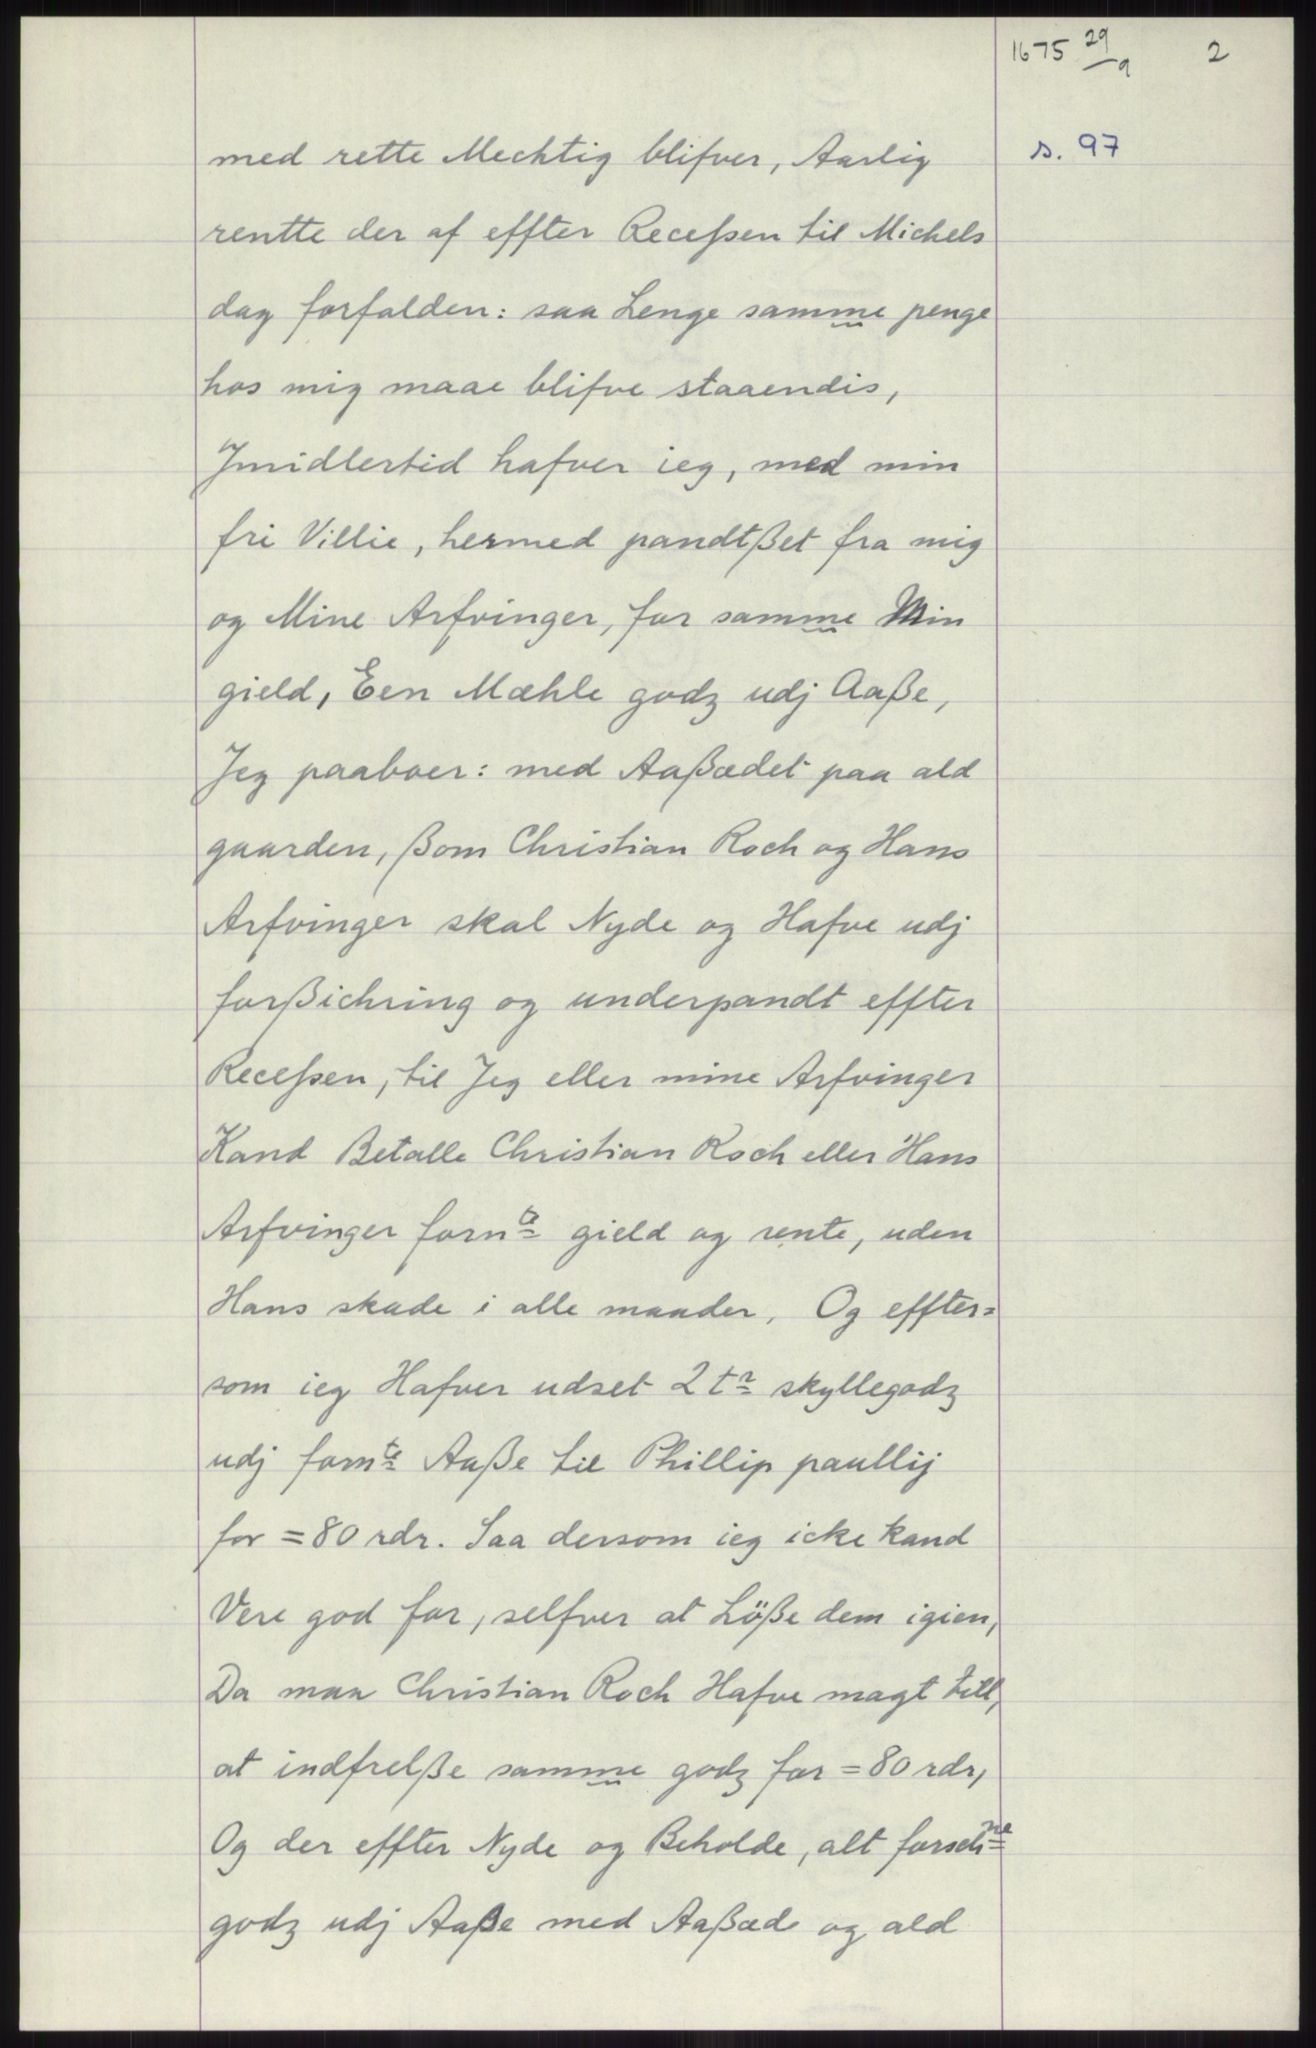 1675 29/9 2
med rette Mechtig blifver, Aarlig
s. 97
rentte der af effter Recehsen til Michels
dag forfalden: saa Lenge samme penge
hos mig maae blifve staaendis,
Jmidlertid hafver ieg, med min
fri Villie, hermed pandtßet fra mig
og Mine Arfvinger, for samme Min
gield, Een Mæhle godz udj Aaße,
Jeg paaboer: med Aaßædet paa ald
gaarden, ßom Christian Roch og Hans
Arfvinger skal Nyde og Hafve udj
forßichring og underpandt effter
Recehsen, til Jeg eller mine Arfvinger
Kand Betalle Christian Koch eller Hans
Arfvinger fornte gield og rente, uden
Hans skade i alle maader. Og effter=
som ieg Hafver udset 2 tr skyllegodz
udj fornte Aaße til Phillip paullij
for =80 rdr. Saa dersom ieg icke kand
Vere god for, selfver at Löße dem igien,
Da maa Christian Roch Hafve magt till,
at indfrelße samme godz for =80 rdr,
Og der effter Nyde og Beholde, alt forschne
godz udj Aaße med Aaßæde og ald